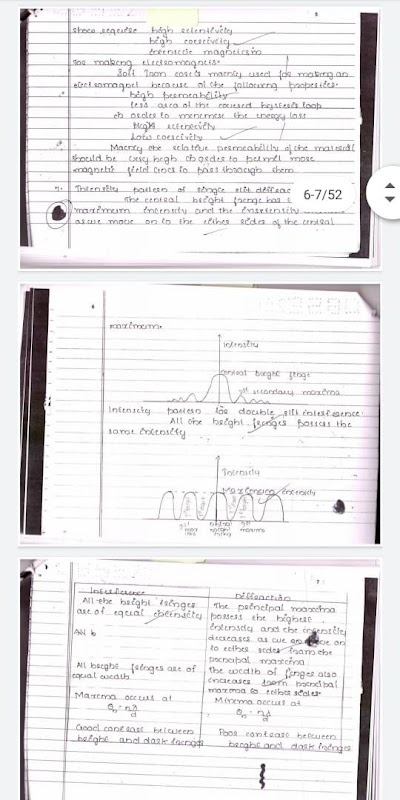 those require high retentivity
high coercivity
intensicle magnetism
for making electromagnets.
Soft Iron core is mainly used for making an
electromagnet because of the following properties.
high permeability
less area of the covered hysteresis loop
in order to minimise the energy loss
High retentivity
Low coercivity
Mainly the relative permeability of the material
should be very high in order to permit more
magnetic field lines to pass through them
7. Intensity pattern of single slit diffrac
The central bright fringe has
maximum intensity and the intensity
as we move on to the either sides of the central
6-7/52
maximum.
Intensity
central bright fringe
1st secondary maxima
Intensity pattern for double slit interference.
All the bright fringes possess the
same intensity
Intensity
Maximum intensity
Interference
Diffraction
All the bright fringes
are of equal intensity
The principal maxima
possess the highest
intensity and the intensity
decreases as we move on
to either sides from the
principal maxima.
All b
All bright fringes are of
equal width
The width of fringes also
increases from principal
maxima to either sides
Maxima occurs at
θn = nλ/d
Minima occurs at
θn = nλ/d
Good contrast between
bright and dark fringes
Poor contrast between
bright and dark fringes